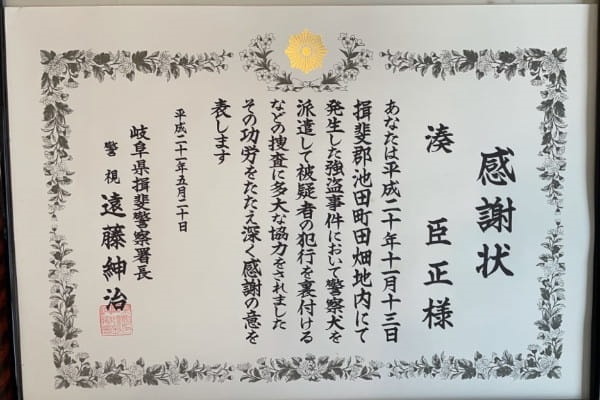 感謝状
湊 臣正様
あなたは平成二十年十一月十三日
揖斐郡池田町田畑地内にて
発生した強盗事件において警察犬を
派遣して被疑者の犯行を裏付ける
などの捜査に多大な協力をされました
その功労をたたえ深く感謝の意を
表します
平成二十一年五月二十日
岐阜県揖斐警察署長
警視 遠藤紳治